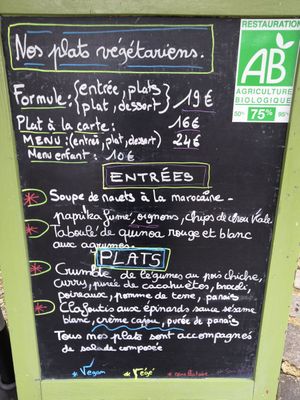 Nos plats végétariens.
RESTAURATION
AB
AGRICULTURE
BIOLOGIQUE
50% 75% 95%
Formule: {entrée, plats} {plat, dessert} 19€
Plat à la carte: 16€
MENU: (entrée, plat, dessert) 24€
Menu enfant: 10€
ENTRÉES
* Soupe de navets à la marocaine -
paprika fumé, oignons, chips de chou kale
* Taboulé de quinoa rouge et blanc
aux agrumes.
PLATS
* Crumble de légumes au pois chiche,
curry, purée de cacahuètes, brocoli,
poireaux, pomme de terre, panais
* Clafoutis aux épinards sauce sésame
blanc, crème cajou, purée de panais
Tous nos plats sont accompagnés
de salade composée
* Vegan * Végé